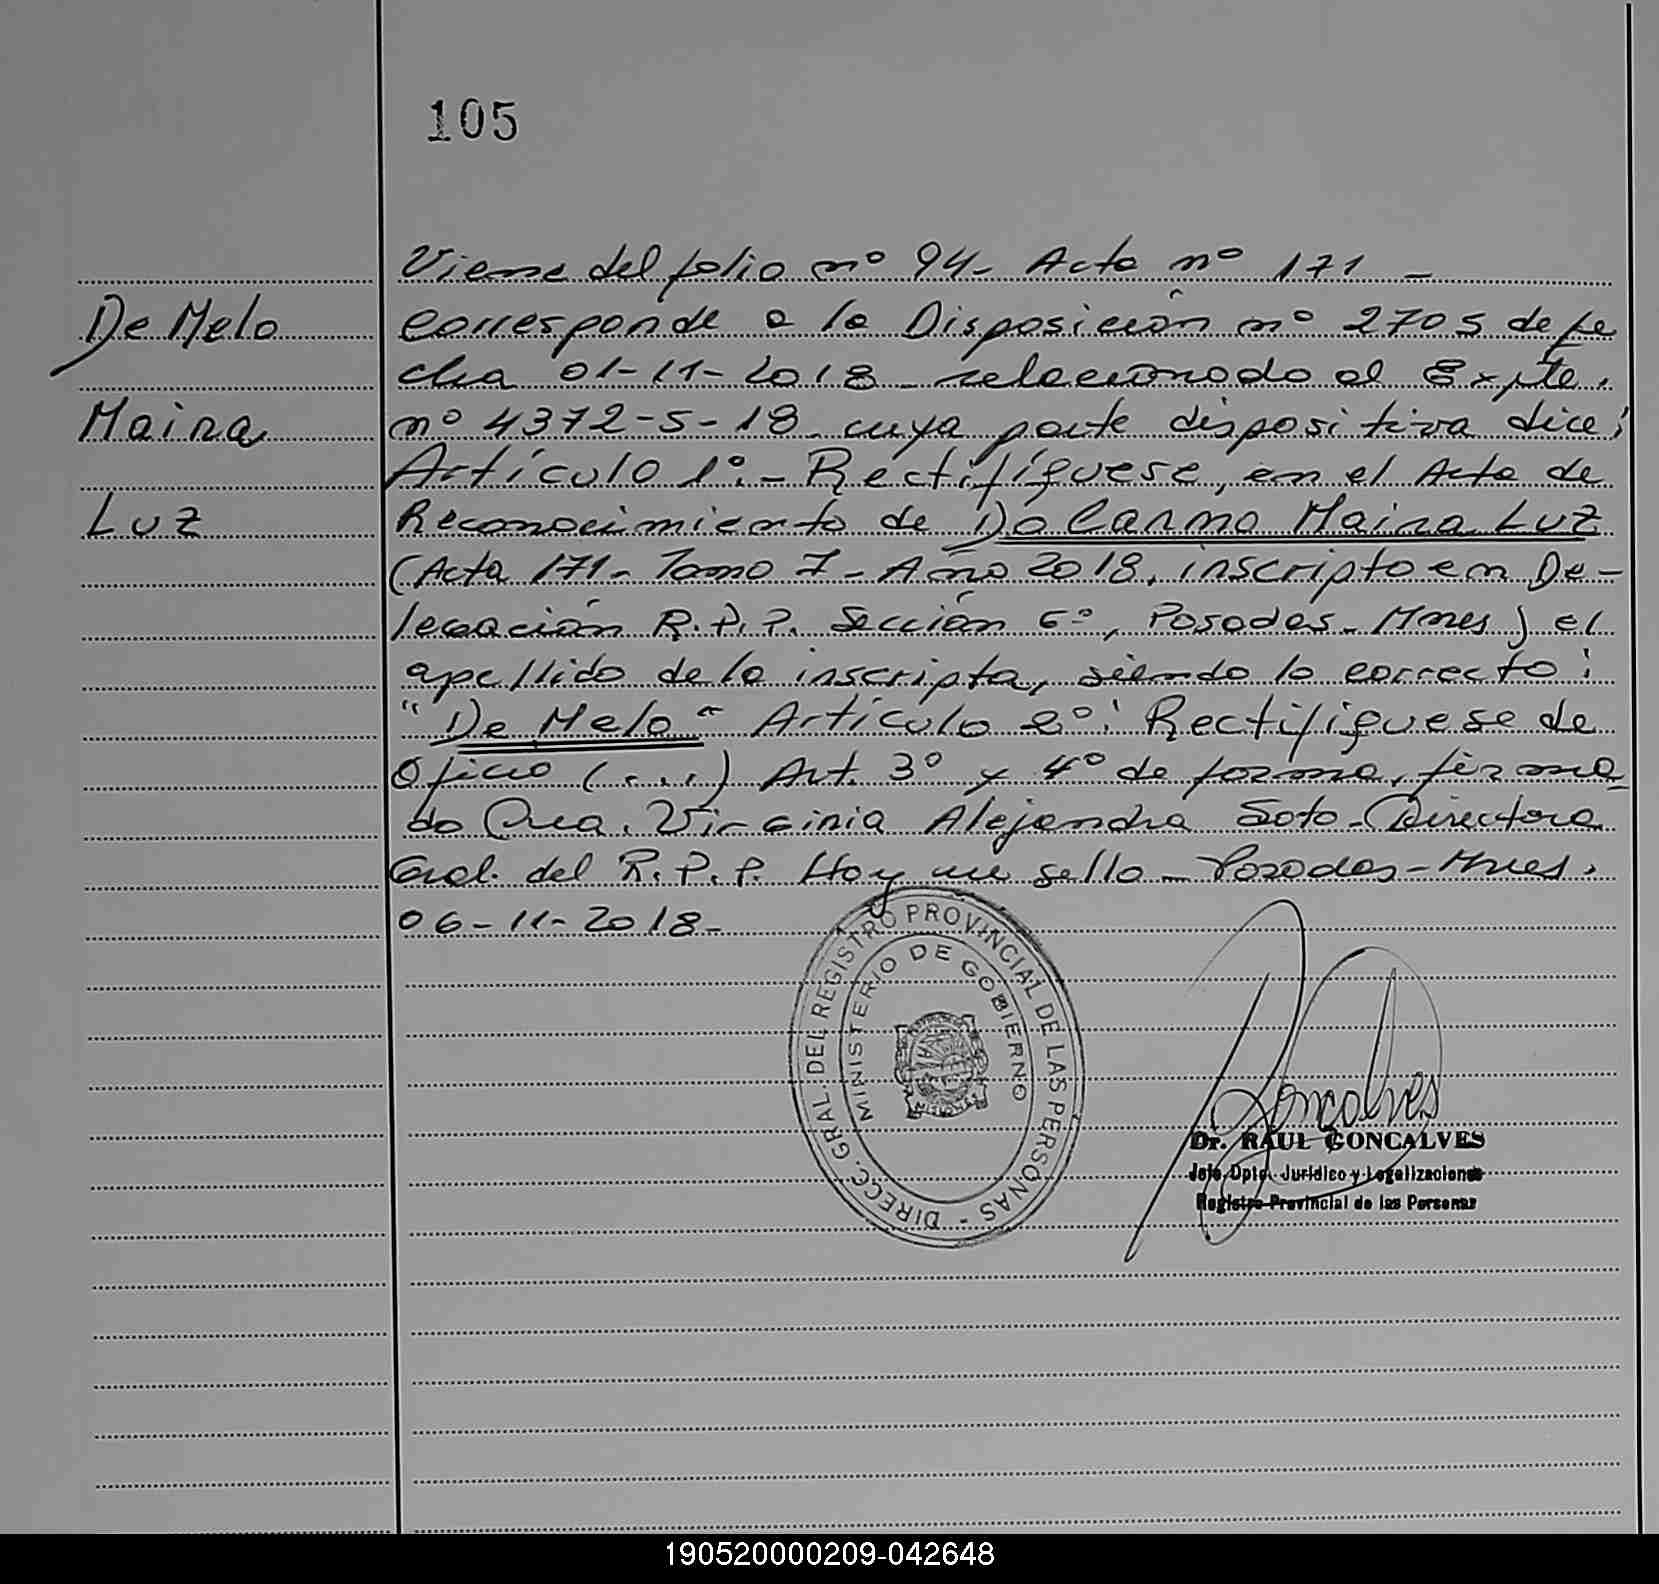 105
Viene del folio nº 94- Acta nº 171 -
De Melo
Maira
Luz
corresponde a la Disposición nº 2705 de fe
cha 01-11-2018 relacionado al Expte.
nº 4372-S-18 cuya parte dispositiva dice:
Artículo 1º:- Rectifíquese, en el Acta de
Reconocimiento de Do Carmo Maira Luz
(Acta 171- Tomo 7- Año 2018, inscripto en De-
legación R.P.P. Sección 6º, Posadas- Mnes) el
apellido de la inscripta, siendo lo correcto:
"De Melo" Artículo 2º: Rectifíquese de
Oficio (....) Art. 3º y 4º de forma, firma
do Dra. Virginia Alejandra Soto- Directora
Gral. del R.P.P. Hay un sello - Posadas- Mnes.
06-11-2018-
DIRECC. GRAL. DEL REGISTRO PROVINCIAL DE LAS PERSONAS -
MINISTERIO DE GOBIERNO
MISIONES
Goncalves
Dr. RAUL GONCALVES
Jefe Dpto. Jurídico y Legalizaciones
Registro Provincial de las Personas
190520000209-042648